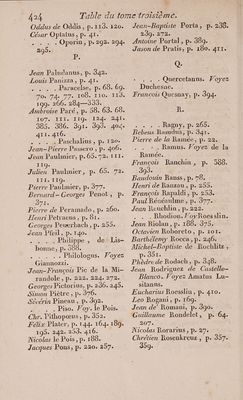 424 Table du tome troisième.
Oddus de Oddis, p. 113. 120.
César Optatus, p. 41.
. . . . Oporin, p. 292. 294.
295.
P.
Jean Paludanus, p. 342.
Louis Panizza, p. 41.
. . . . Paracelse, p. 68. 69.
70. 74. 77. 108. 110. 113.
199. 266. 284—333.
Ambroise Paré, p. 58. 63. 68.
107. 111. 119. 124. 241.
385. 386. 391. 393. 404.
411. 416.
. . . . Paschalius, p. 120.
Jean-Pierre Passero, p. 406.
Jean Paulmier, p. 65. 72. 111.
119.
Julien Paulmier, p. 65. 72.
111. 119.
Pierre Paulmier, p. 377.
Bernard-Georges Penot, p.
371.
Pierre de Peramado, p. 260.
Henri Petraeus, p. 81.
Georges Peuerbach, p. 255.
Jean Pfeil, p. 140.
. . . . Philippe, de Lisbonne, p. 388.
. . . . Philologus. Voyez
Giannozzi.
Jean-François Pic de la Mirandole, p. 222. 224. 272.
Georges Pictorius, p. 236. 245.
Simon Piètre, p. 376.
Sévérin Pineau, p. 392.
. . . . Piso. Voy. le Pois.
Chr. Pithopœus, p. 352.
Félix Plater, p. 144. 164. 189.
195. 242. 253. 416.
Nicolas le Pois, p. 188.
Jacques Pons, p. 220. 257.
Jean-Baptiste Porta, p. 238.
239. 272.
Antoine Portal, p. 389.
Jason de Pratis, p. 180. 411.
Q.
. . . . Quercetanus. Voyez
Duchesne.
François Quesnay, p. 394.
R.
. . . . Ragny, p. 265.
Pierre de la Ramée, p. 22.
. . . . Ramus. Voyez de la
Ramée.
François Ranchin, p. 388.
393.
Baudouin Ranss, p. 78.
Henri de Ranzau, p. 255.
François Rapaldi, p. 253.
Paul Renéaulme, p. 377.
Jean Reuchlin, p. 222.
. . . . Rhodion. Voy Roesslin.
Jean Riolan, p. 188. 375.
Octavien Roboreto, p. 101.
Barthélemy Rocca, p. 246.
Michel-Baptiste de Rochlitz,
p. 351.
Phèdre de Rodach, p. 348.
Jean Rodriguez de Castello-
Blanco. Voyez Amatus Lusitanus.
Eucharius Roesslin, p. 410.
Leo Rogani, p. 169.
Jean de Romani, p. 390.
Guillaume Rondelet, p. 64.
207.
Nicolas Rorarius, p. 27.
Chrétien Rosenkreuz, p. 357.
359.